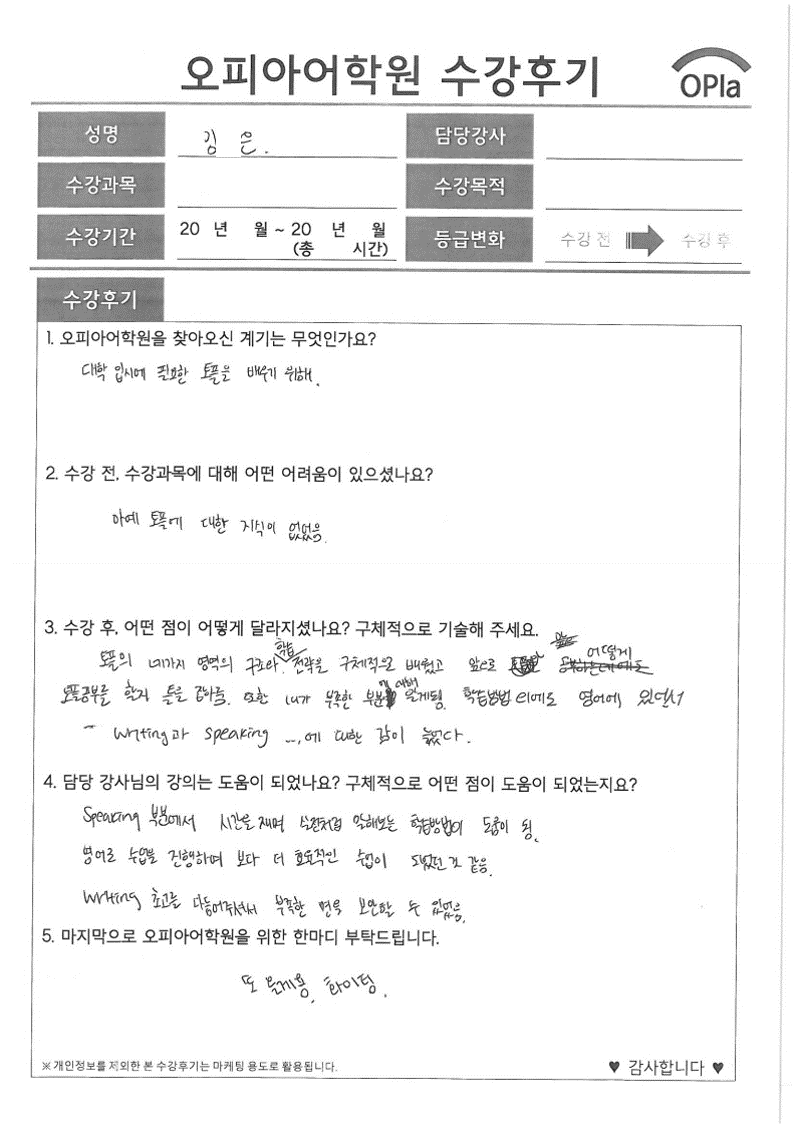 오피아어학원 수강후기
OPIa
성명 김 은.
담당강사
수강과목
수강목적
수강기간 20 년 월 ~ 20 년 월
(총 시간)
등급변화 수강 전 수강 후
수강후기
1. 오피아어학원을 찾아오신 계기는 무엇인가요?
대학 입시에 필요한 토플을 배우기 위해.
2. 수강 전, 수강과목에 대해 어떤 어려움이 있으셨나요?
아예 토플에 대한 지식이 없었음.
3. 수강 후, 어떤 점이 어떻게 달라지셨나요? 구체적으로 기술해 주세요.
토플의 네가지 영역의 구조와 학습 전략을 구체적으로 배웠고 앞으로 어떻게
토플공부를 할지 틀을 잡아줌. 또한 내가 부족한 부분에 대해 알게됨. 학습방법 이외에도 영어에 있어서
writing과 speaking ...에 대한 감이 늘었다.
4. 담당 강사님의 강의는 도움이 되었나요? 구체적으로 어떤 점이 도움이 되었는지요?
Speaking 부분에서 시간을 재며 실전처럼 말해보는 학습방법이 도움이 됨.
영어로 수업을 진행하며 보다 더 효율적인 수업이 되었던 것 같음.
Writing 초고를 다듬어주셔서 부족한 면을 보완할 수 있었음.
5. 마지막으로 오피아어학원을 위한 한마디 부탁드립니다.
또 올게용. 화이팅.
※ 개인정보를 제외한 본 수강후기는 마케팅 용도로 활용됩니다.
♥ 감사합니다 ♥